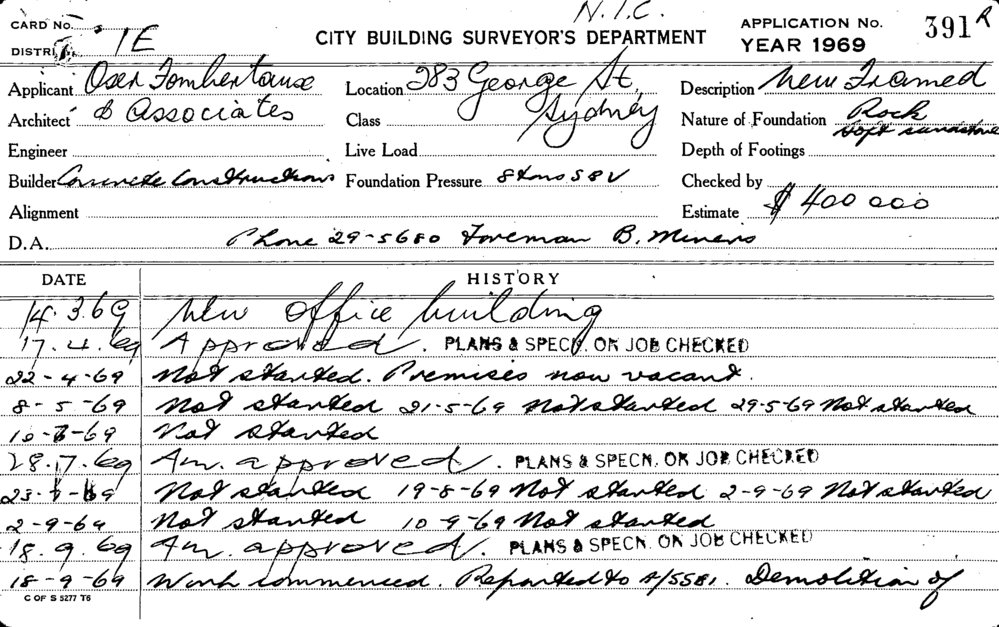 N.I.C.
CARD No. 1E
CITY BUILDING SURVEYOR'S DEPARTMENT
APPLICATION No. 391 R
DISTRICT
YEAR 1969
Applicant Oser Fombertaux
Location 283 George St,
Description New Framed
Architect & Associates
Class Sydney
Nature of Foundation Rock
soft sandstone
Engineer
Live Load
Depth of Footings
Builder Concrete Constructions
Foundation Pressure 8 tons
Checked by
Alignment
Estimate $ 400 000
D.A. Phone 29-5680 Foreman B. Miners
DATE HISTORY
14.3.69 New office building
17.4.69 Approved. PLANS & SPECN. ON JOB CHECKED
22-4-69 Not started. Premises now vacant.
8-5-69 Not started 21-5-69 Not started 29-5-69 Not started
10-6-69 Not started
28.7.69 Am. approved. PLANS & SPECN. ON JOB CHECKED
Not started 19-8-69 Not started 2-9-69 Not started
2-9-69 Not started 10-9-69 Not started
18.9.69 Am. approved. PLANS & SPECN. ON JOB CHECKED
18-9-69 Work commenced. Reported to Demolition of
C OF S 5277 T6